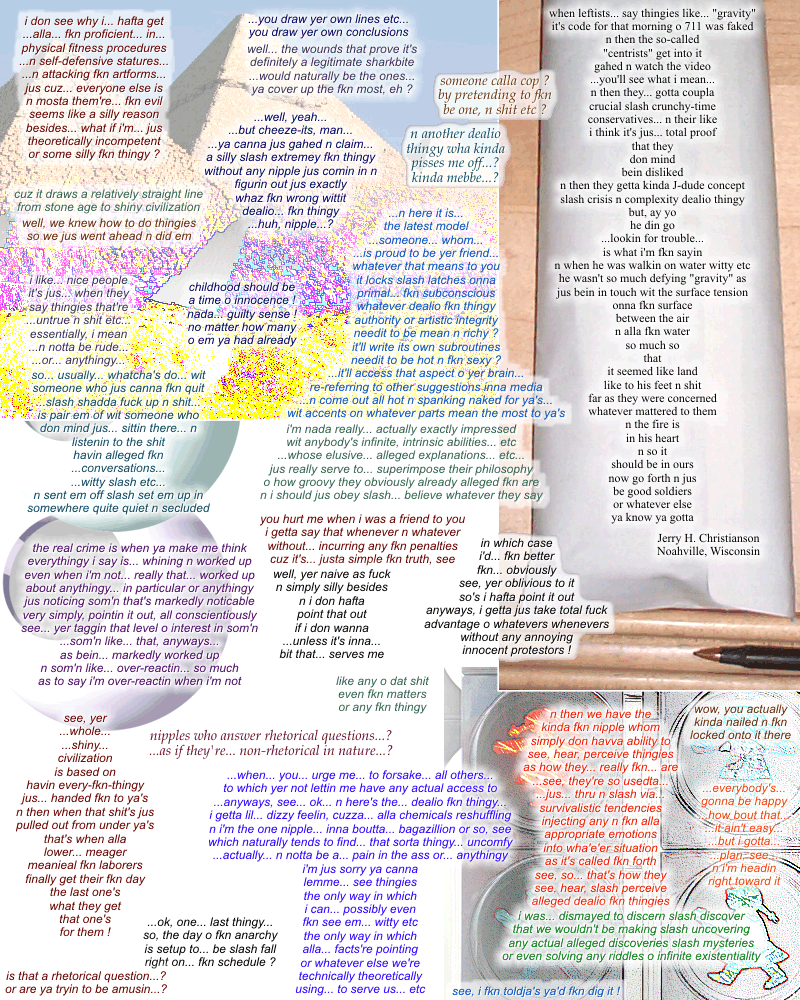 i don see why i... hafta get
...alla... fkn proficient... in...
physical fitness procedures
...n self-defensive statures...
...n attacking fkn artforms...
jus cuz... everyone else is
n mosta them're... fkn evil
seems like a silly reason
besides... what if i'm... jus
theoretically incompetent
or some silly fkn thingy ?
cuz it draws a relatively straight line
from stone age to shiny civilization
well, we knew how to do thingies
so we jus went ahead n did em
i like... nice people
it's jus... when they
say thingies that're
...untrue n shit etc...
essentially, i mean
...n notta be rude...
...or... anythingy...
so... usually... whatcha's do... wit
someone who jus canna fkn quit
...slash shadda fuck up n shit...
is pair em of wit someone who
don mind jus... sittin there... n
listenin to the shit
havin alleged fkn
...conversations...
...witty slash etc...
n sent em off slash set em up in
somewhere quite quiet n secluded
...you draw yer own lines etc...
you draw yer own conclusions
well... the wounds that prove it's
definitely a legitimate sharkbite
...would naturally be the ones...
ya cover up the fkn most, eh ?
...well, yeah...
...but cheeze-its, man...
...ya canna jus gahed n claim...
a silly slash extremey fkn thingy
without any nipple jus comin in n
figurin out jus exactly
whaz fkn wrong wittit
dealio... fkn thingy
...huh, nipple...?
childhood should be
a time o innocence !
nada... guilty sense !
no matter how many
o em ya had already
someone calla cop ?
by pretending to fkn
be one, n shit etc ?
n another dealio
thingy wha kinda
pisses me off...?
kinda mebbe...?
...n here it is...
the latest model
...someone... whom...
...is proud to be yer friend...
whatever that means to you
it locks slash latches onna
primal... fkn subconscious
whatever dealio fkn thingy
authority or artistic integrity
needit to be mean n richy ?
it'll write its own subroutines
needit to be hot n fkn sexy ?
...it'll access that aspect o yer brain...
re-referring to other suggestions inna media
...n come out all hot n spanking naked for ya's...
wit accents on whatever parts mean the most to ya's
i'm nada really... actually exactly impressed
wit anybody's infinite, intrinsic abilities... etc
...whose elusive... alleged explanations... etc...
jus really serve to... superimpose their philosophy
o how groovy they obviously already alleged fkn are
n i should jus obey slash... believe whatever they say
when leftists... say thingies like... "gravity"
it's code for that morning o 711 was faked
n then the so-called
"centrists" get into it
gahed n watch the video
...you'll see what i mean...
n then they... gotta coupla
crucial slash crunchy-time
conservatives... n their like
i think it's jus... total proof
that they
don mind
bein disliked
n then they getta kinda J-dude concept
slash crisis n complexity dealio thingy
but, ay yo
he din go
...lookin for trouble...
is what i'm fkn sayin
n when he was walkin on water witty etc
he wasn't so much defying "gravity" as
jus bein in touch wit the surface tension
onna fkn surface
between the air
n alla fkn water
so much so
that
it seemed like land
like to his feet n shit
far as they were concerned
whatever mattered to them
n the fire is
in his heart
n so it
should be in ours
now go forth n jus
be good soldiers
or whatever else
ya know ya gotta
Jerry H. Christianson
Noahville, Wisconsin
the real crime is when ya make me think
everythingy i say is... whining n worked up
even when i'm not... really that... worked up
about anythingy... in particular or anythingy
jus noticing som'n that's markedly noticable
very simply, pointin it out, all conscientiously
see... yer taggin that level o interest in som'n
...som'n like... that, anyways...
as bein... markedly worked up
n som'n like... over-reactin... so much
as to say i'm over-reactin when i'm not
you hurt me when i was a friend to you
i getta say that whenever n whatever
without... incurring any fkn penalties
cuz it's... justa simple fkn truth, see
well, yer naive as fuck
n simply silly besides
n i don hafta
point that out
if i don wanna
...unless it's inna...
bit that... serves me
in which case
i'd... fkn better
fkn... obviously
see, yer oblivious to it
so's i hafta point it out
anyways, i getta jus take total fuck
advantage o whatevers whenevers
without any annoying
innocent protestors !
like any o dat shit
even fkn matters
or any fkn thingy
see, yer
...whole...
...shiny...
civilization
is based on
havin every-fkn-thingy
jus... handed fkn to ya's
n then when that shit's jus
pulled out from under ya's
that's when alla
lower... meager
meanieal fkn laborers
finally get their fkn day
the last one's
what they get
that one's
for them !
nipples who answer rhetorical questions...?
...as if they're... non-rhetorical in nature...?
...when... you... urge me... to forsake... all others...
to which yer not lettin me have any actual access to
...anyways, see... ok... n here's the... dealio fkn thingy...
i getta lil... dizzy feelin, cuzza... alla chemicals reshuffling
n i'm the one nipple... inna boutta... bagazillion or so, see
which naturally tends to find... that sorta thingy... uncomfy
...actually... n notta be a... pain in the ass or... anythingy
i'm jus sorry ya canna
lemme... see thingies
the only way in which
i can... possibly even
fkn see em... witty etc
the only way in which
alla... facts're pointing
or whatever else we're
technically theoretically
using... to serve us... etc
...ok, one... last thingy...
so, the day o fkn anarchy
is setup to... be slash fall
right on... fkn schedule ?
is that a rhetorical question...?
or are ya tryin to be amusin...?
n then we have the
kinda fkn nipple whom
simply don havva ability to
see, hear, perceive thingies
as how they... really fkn... are
...see, they're so usedta...
...jus... thru n slash via...
survivalistic tendencies
injecting any n fkn alla
appropriate emotions
into wha'e'er situation
as it's called fkn forth
see, so... that's how they
see, hear, slash perceive
alleged dealio fkn thingies
wow, you actually
kinda nailed n fkn
locked onto it there
...everybody's...
gonna be happy
how bout that...
it ain't easy...
...but i gotta...
...plan, see...
n i'm headin
right toward it
i was... dismayed to discern slash discover
that we wouldn't be making slash uncovering
any actual alleged discoveries slash mysteries
or even solving any riddles o infinite existentiality
see, i fkn toldja's ya'd fkn dig it !